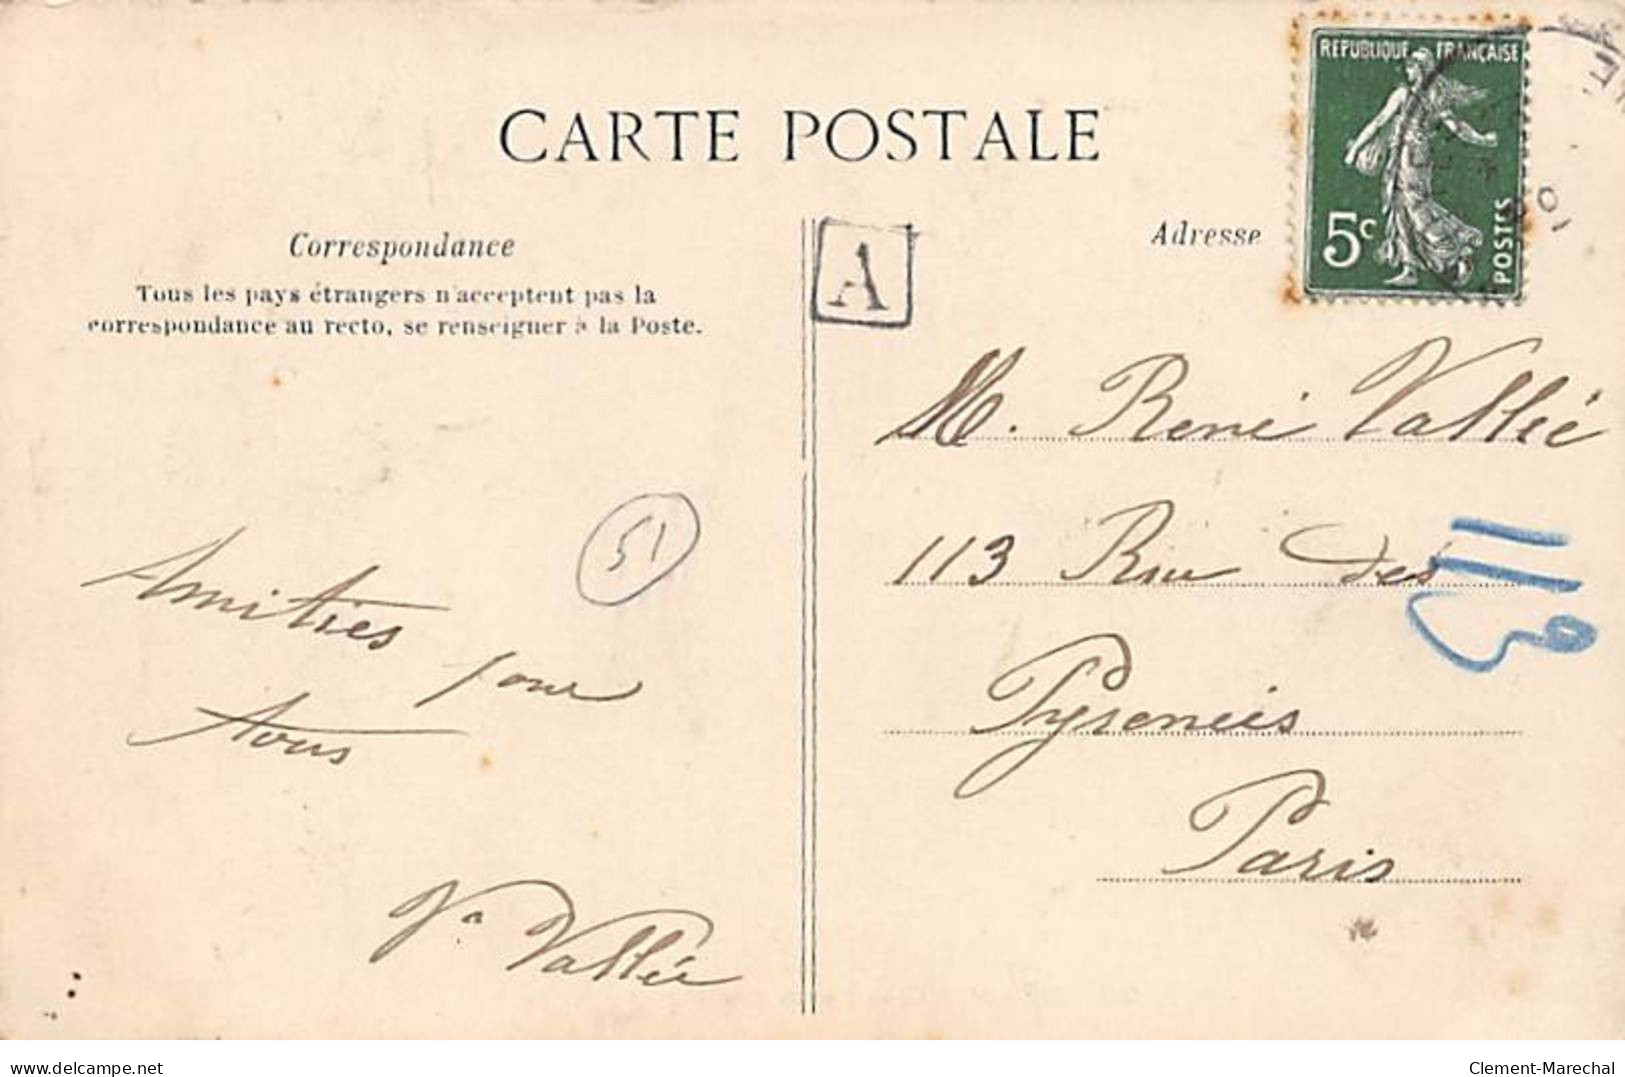 REPUBLIQUE FRANÇAISE
5c
POSTES
CARTE POSTALE
Correspondance
Tous les pays étrangers n'acceptent pas la
correspondance au recto, se renseigner à la Poste.
A
Adresse
51
Amitiés pour
tous
Vallée
M. René Vallée
113 Rue des
Pyrenées
Paris
113
delcampe.net
Clement-Marechal